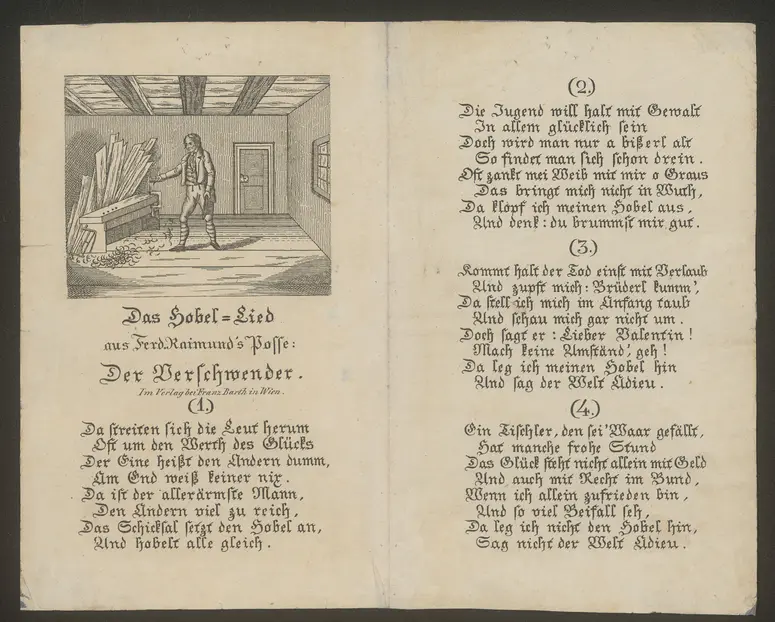 Das Hobel=Lied
aus Ferd. Raimund's Posse:
Der Verschwender.
Im Verlag bei Franz Barth in Wien.
(1.)
Da streiten sich die Leut herum
Oft um den Werth des Glücks
Der Eine heißt den Andern dumm,
Am End weiß keiner nix.
Da ist der allerärmste Mann,
Den Andern viel zu reich,
Das Schicksal setzt den Hobel an,
And hobelt alle gleich.
(2.)
Die Jugend will halt mit Gewalt
In allem glücklich sein
Doch wird man nur a bißerl alt
So findet man sich schon drein.
Oft zankt mei Weib mit mir o Graus
Das bringt mich nicht in Wuth,
Da klopf ich meinen Hobel aus,
Und denk: du brummst mir gut.
(3.)
Kommt halt der Tod einst mit Verlaub
Und zupft mich: Brüderl kumm',
Da stell ich mich im Anfang taub
Und schau mich gar nicht um.
Doch sagt er: Lieber Valentin!
Mach keine Umständ', geh!
Da leg ich meinen Hobel hin
Und sag der Welt Adieu.
(4.)
Ein Tischler, den sei' Waar gefällt,
Hat manche frohe Stund
Das Glück steht nicht allein mit Geld
Und auch mit Recht im Bund,
Wenn ich allein zufrieden bin,
Und so viel Beifall seh,
Da leg ich nicht den Hobel hin,
Sag nicht der Welt Adieu.